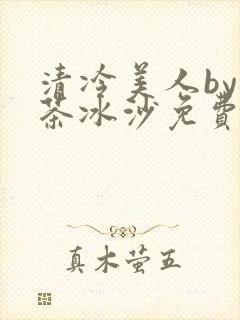 清冷美人by
茶冰沙免費
真木萤五